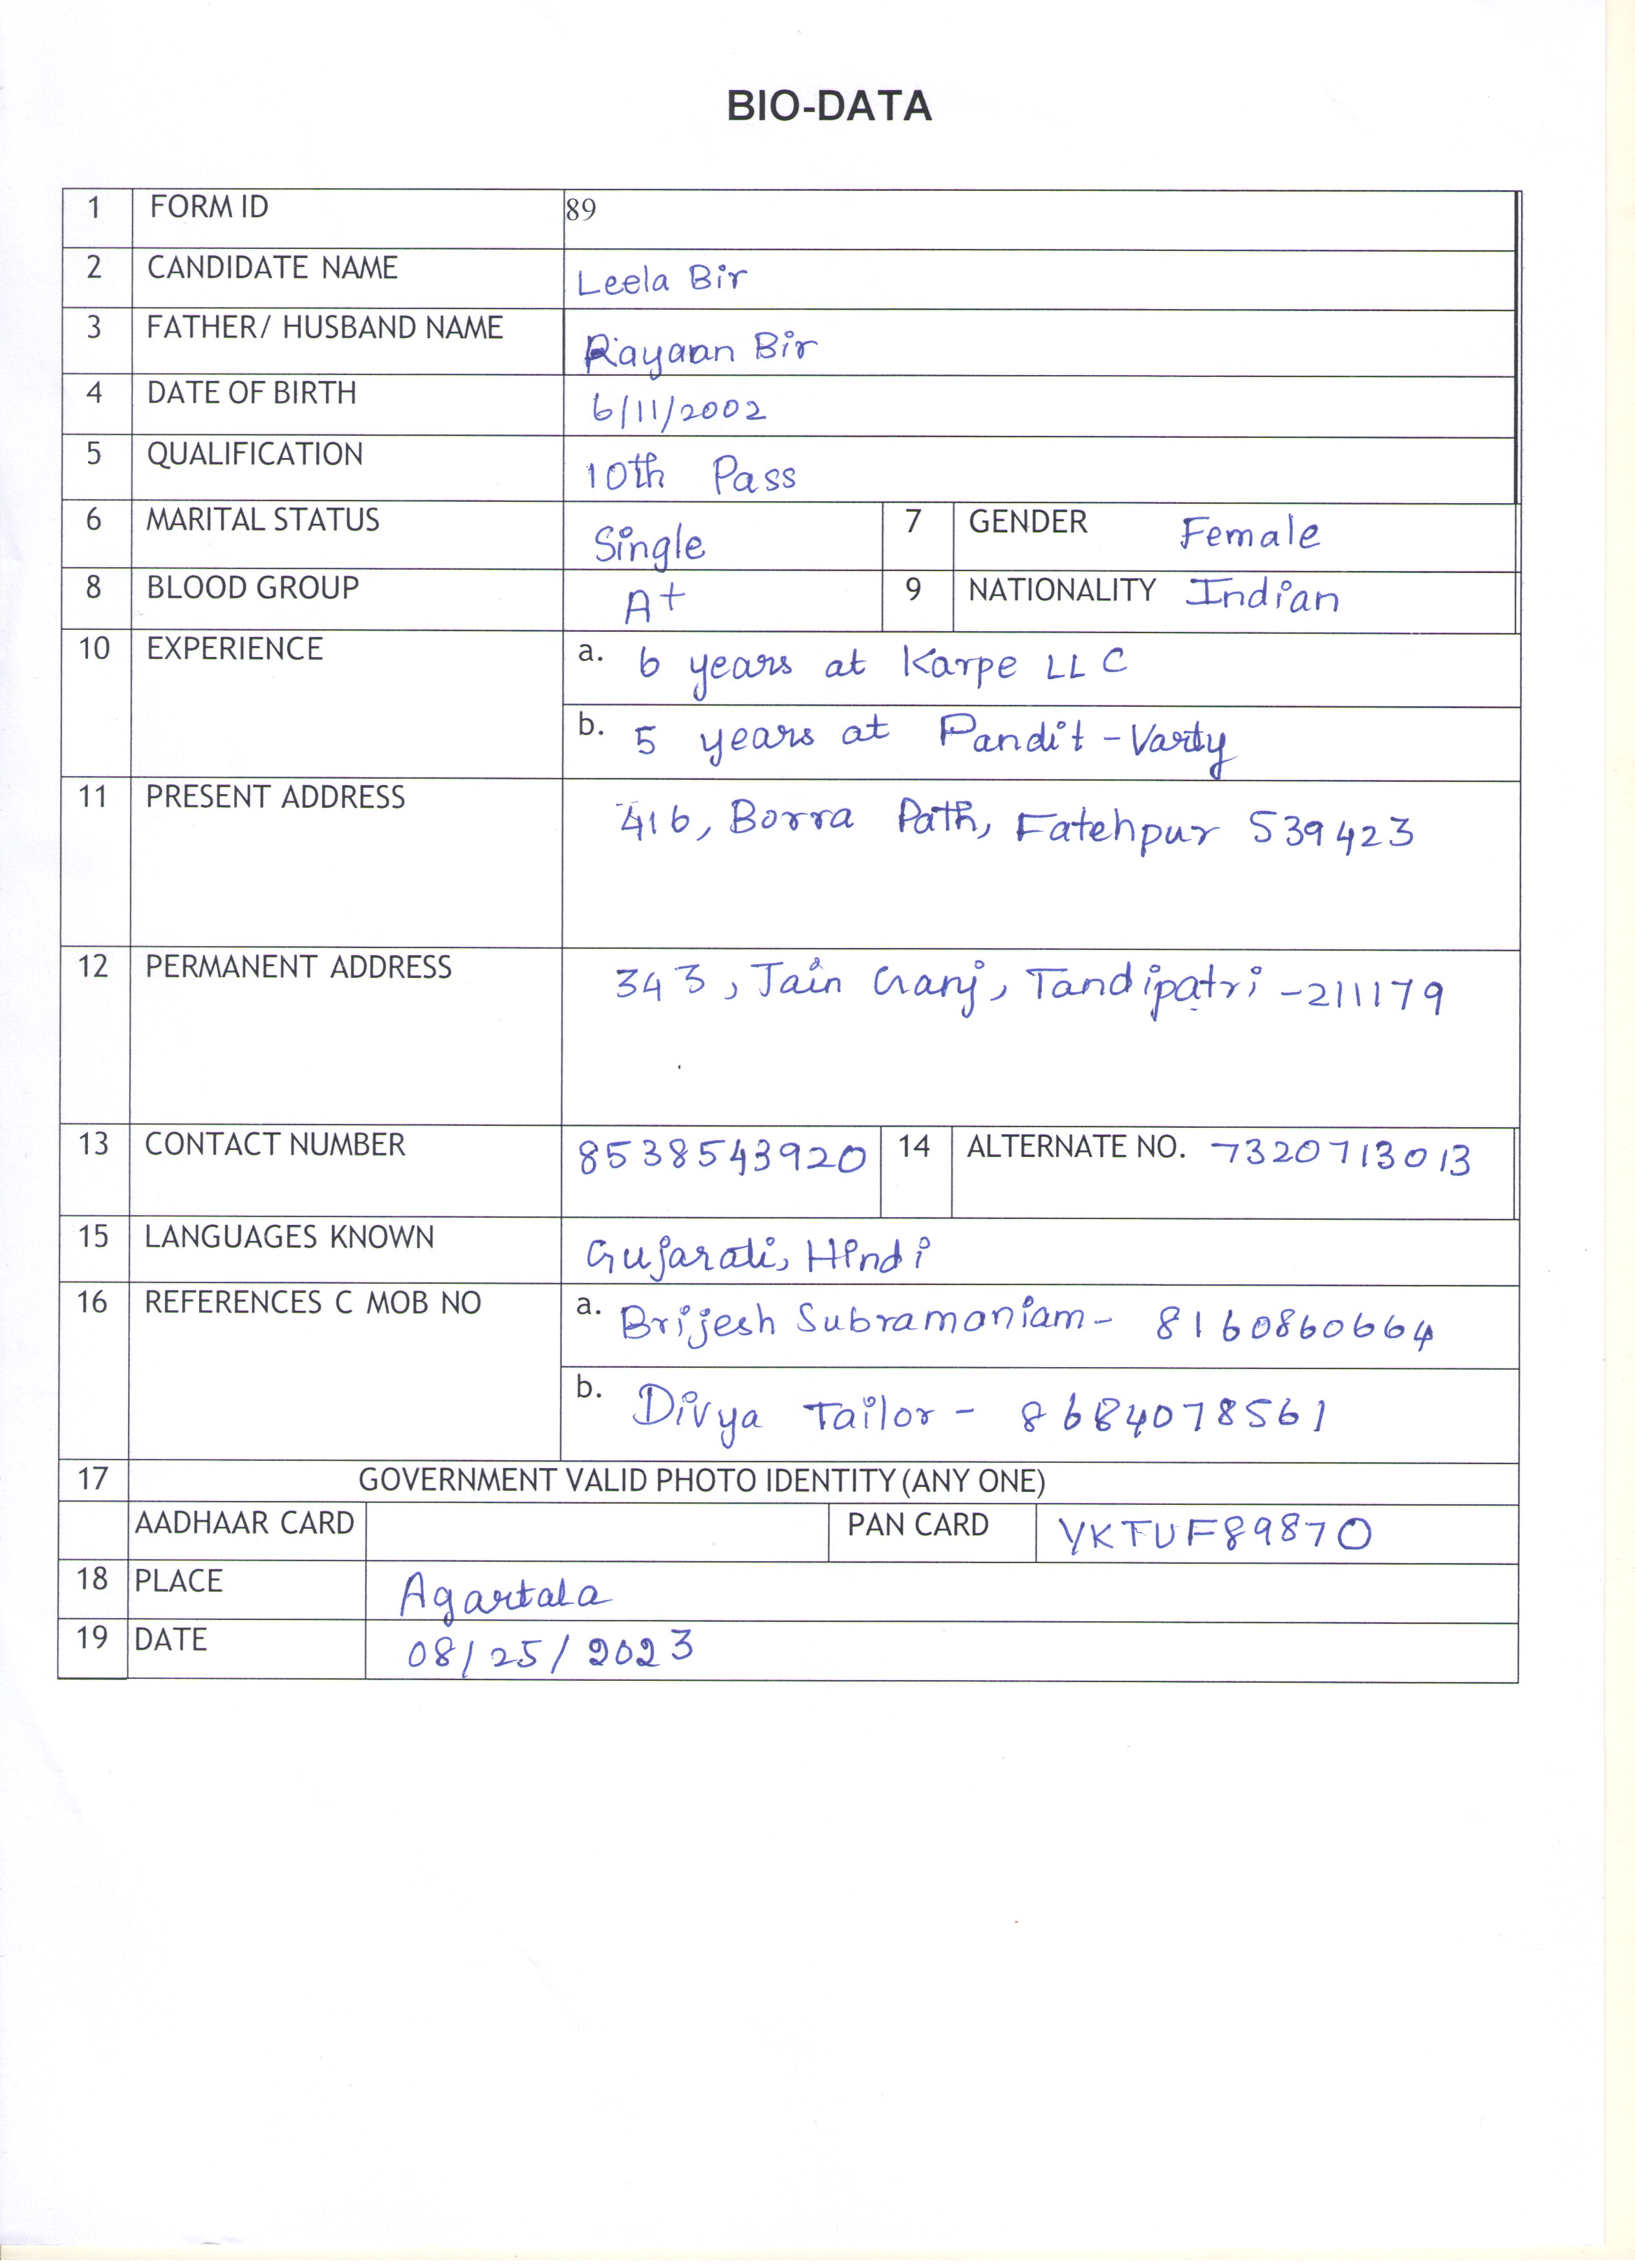 BIO-DATA
1 FORM ID 89
2 CANDIDATE NAME Leela Bir
3 FATHER/ HUSBAND NAME Rayaan Bir
4 DATE OF BIRTH 6/11/2002
5 QUALIFICATION 10th Pass
6 MARITAL STATUS Single 7 GENDER Female
8 BLOOD GROUP A+ 9 NATIONALITY Indian
10 EXPERIENCE a. 6 years at Karpe LLC
b. 5 years at Pandit-Varty
11 PRESENT ADDRESS 416, Borra Path, Fatehpur 539423
12 PERMANENT ADDRESS 343, Jain Ganj, Tandipatri -211179
13 CONTACT NUMBER 8538543920 14 ALTERNATE NO. 7320713013
15 LANGUAGES KNOWN Gujarati, Hindi
16 REFERENCES C MOB NO a. Brijesh Subramoniam- 8160860664
b. Divya Tailor - 8684078561
17 GOVERNMENT VALID PHOTO IDENTITY (ANY ONE)
AADHAAR CARD PAN CARD YKTUF8987O
18 PLACE Agartala
19 DATE 08/25/2023